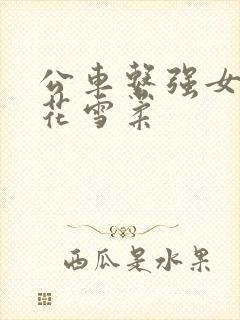 公车系强女
花雪柔
西瓜是水果